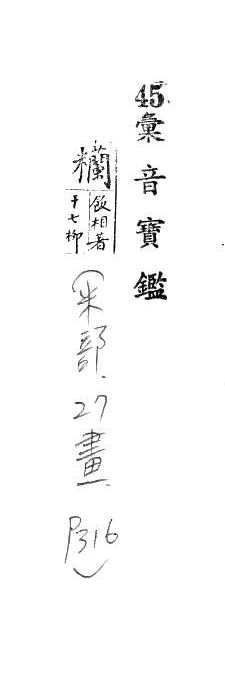 45.彙音寶鑑
糷
飯相著
十七柳
(米部.27畫.P316)